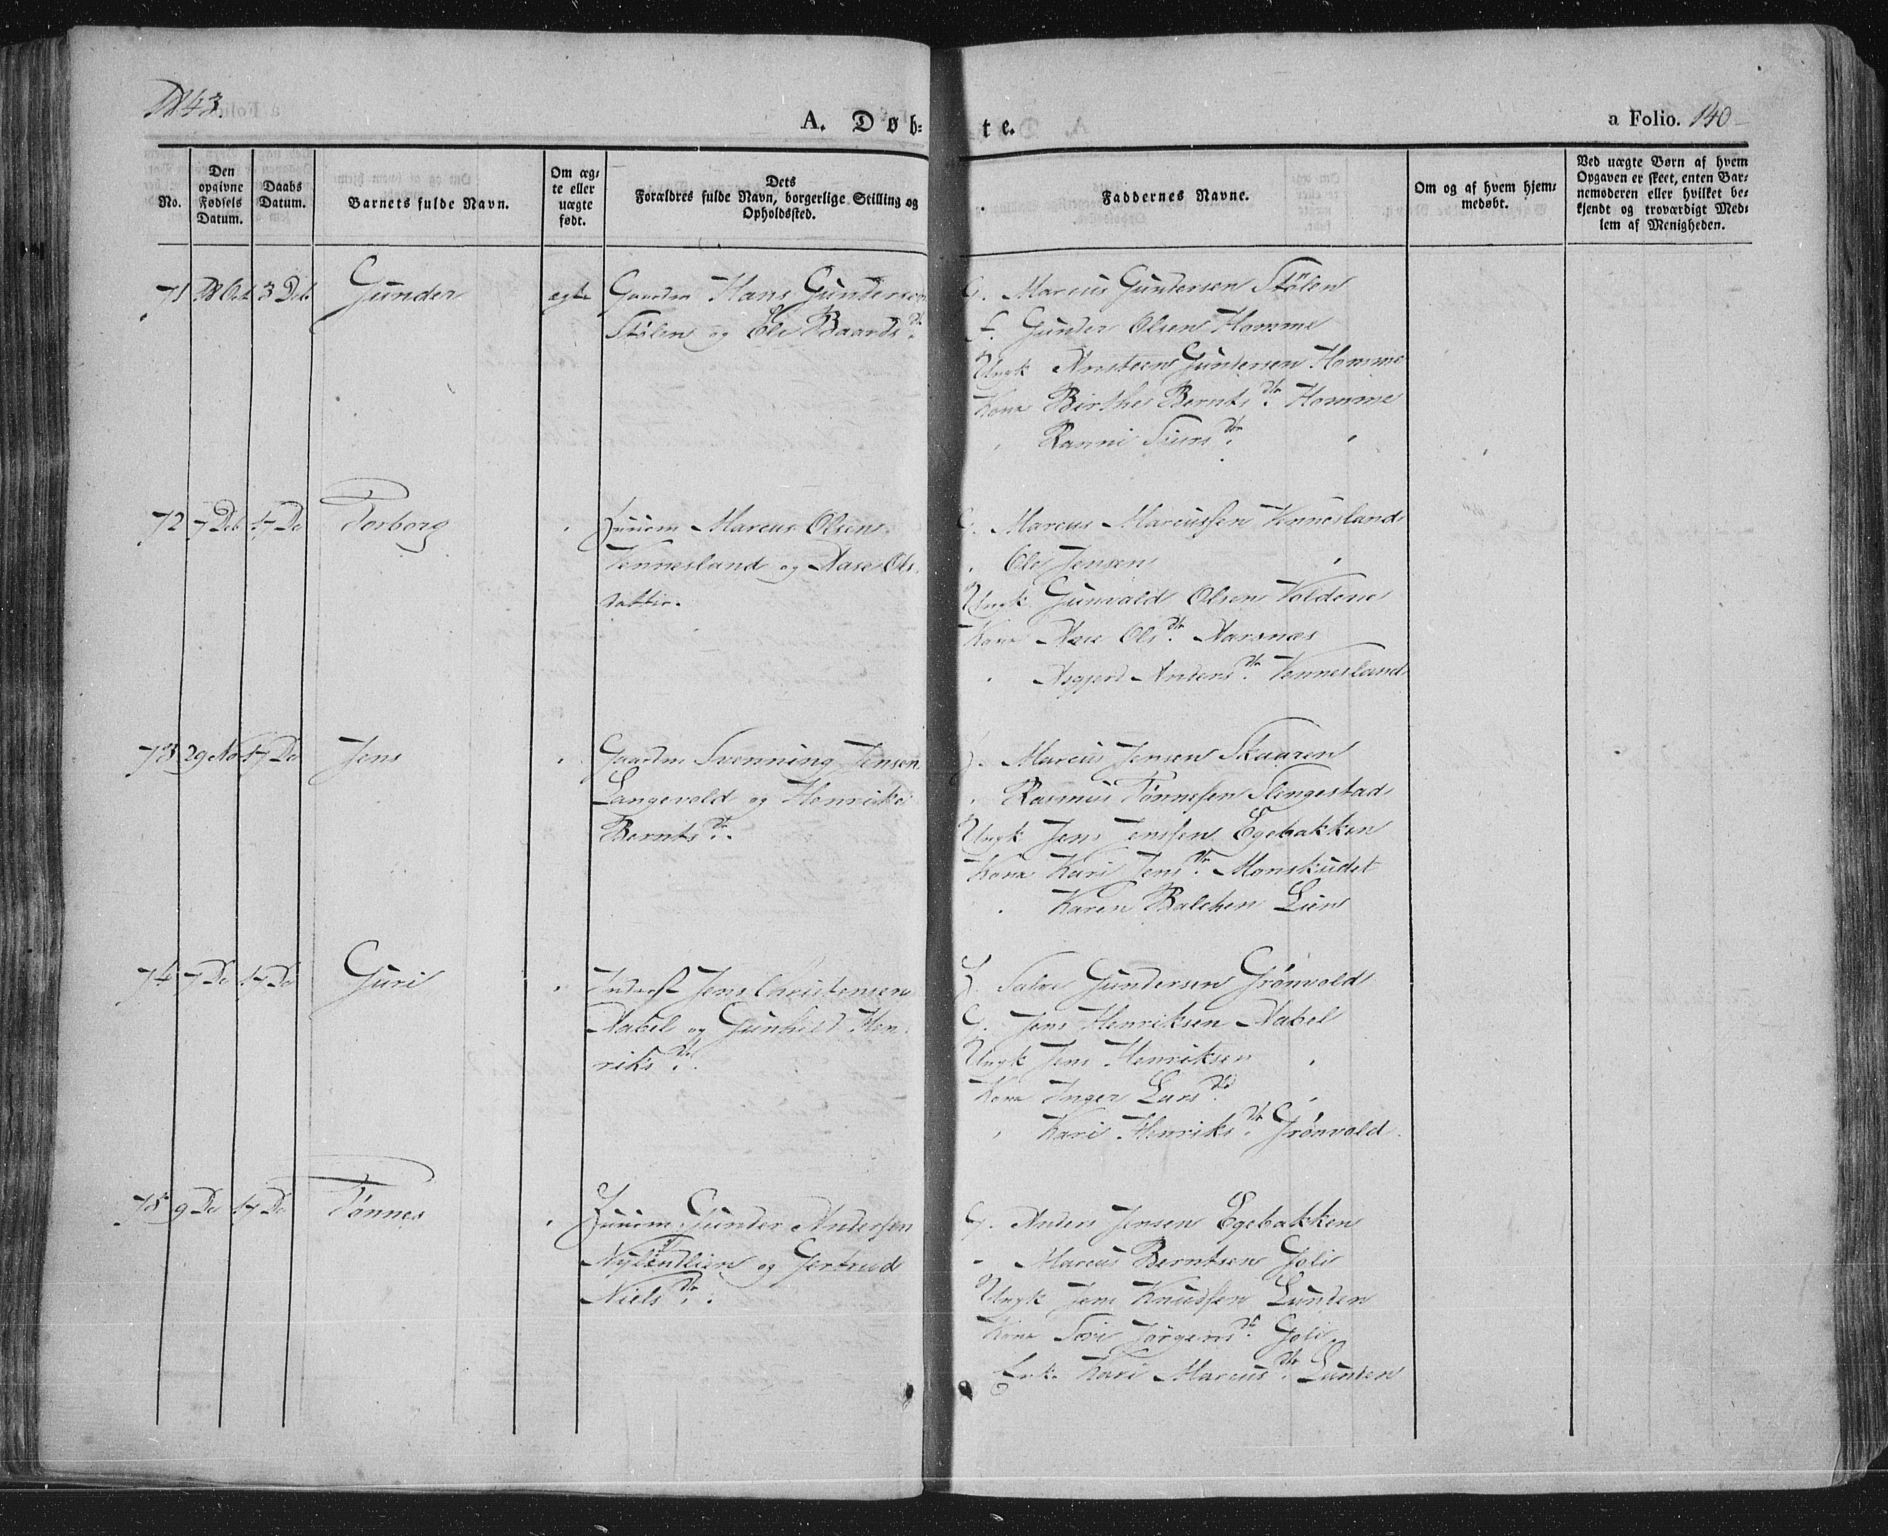 1843.
A. Døb-
te.
a Folio. 140
No.
Den
opgivne
Fødsels
Datum.
Daabs
Datum.
Barnets fulde Navn.
Om æg-
te eller
uægte
født.
Dets
Forældres fulde Navn, borgerlige Stilling og
Opholdssted.
Faddernes Navne.
Om og af hvem hjem-
medøbt.
Ved uægte Børn af hvem
Opgaven er skeet, enten Bar-
nemoderen eller hvilket be-
kjendt og troværdigt Med-
lem af Menigheden.
71 28 Oct 3 Deb Gunder ægte Gaardm Hans Gundersen
Stølen og Ele Baards dr.
G. Marcus Gundersen Stölen
F. Gunder Olsen Homme
Ungk Ansteen Gundersen Homme
Kone Birthe Bernts dr. Homme
" Ranni Siurs dr. "
72 7 Deb 17 De Torborg " Huusm Marcus Olsen
Vennesland og Aase Ols
datter.
G. Marcus Marcussen Vennesland
" Ole Jensen "
Ungk Gunvald Olsen Voldene
Kone Aase Ols dr. Aarsnæs
" Asgjerd Anders dr. Vennesland
73 29 Nov 17 De Jens " Gaardm Svenning Jensen
Langevold og Henrike
Bernts dr.
G. Marcus Jensen Skaaren
" Rasmus Tønnesen Slingestad
Ungk Jens Jenssen Egebakken
Kone Kari Jens dr. Monskudet
" Karen Balchen Lien
74 7 De 17 De Guri " Inderst Jens Christensen
Nabel og Gunhild Hen
riks dr.
H. Salve Gundersen Grönvold
G. Jens Henriksen Nabel
Ungk Jens Henriksen "
Kone Inger Lars dr "
" Kari Henriks dr. Grönvold.
75 9 De 17 De Tönnes " Huusm. Gunder Andersen
Nylendlien og Gertrud
Niels dr.
G. Anders Jensen Egebakken
" Marcus Berntsen Goli
Ungk Jens Knudsen Lunden
Kone Siri Jörgens dr. Goli
Enk. Kari Marcus dr. Lunden